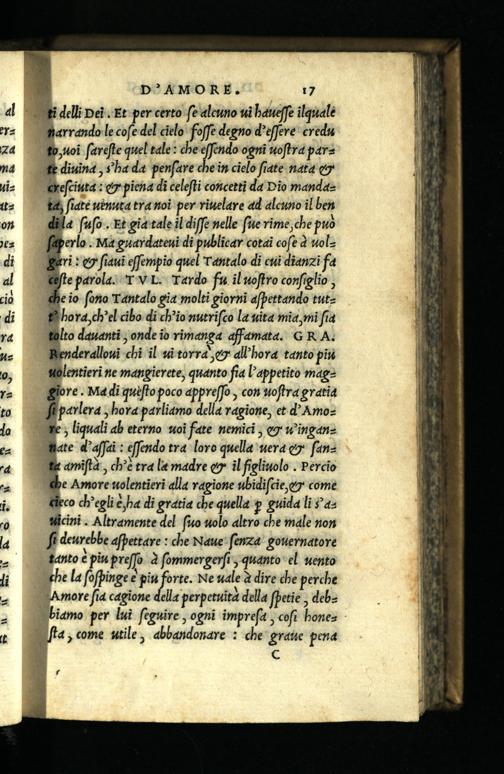 al
er=
za
ma
ui=
at=
on
pe=
di
al
ciò
di
ra
fu=
to,
r=
ito
do
e=
ra
e=
si.
ro
la
e=
di
e=
e=
at
D'AMORE. 17
ti delli Dei. Et per certo se alcuno ui hauesse ilquale
narrando le cose del cielo fosse degno d'essere credu
to, uoi sareste quel tale: che essendo ogni uostra par=
te diuina, s'ha da pensare che in cielo siate nata &
cresciuta: & piena di celesti concetti da Dio manda=
ta, siate uenuta tra noi per riuelare ad alcuno il ben
di la suso. Et gia tale il disse nelle sue rime, che può
saperlo. Ma guardateui di publicar cotai cose à uol=
gari: & siaui essempio quel Tantalo di cui dianzi fa
ceste parola. TVL. Tardo fu il uostro consiglio,
che io sono Tantalo gia molti giorni aspettando tut=
t'hora, ch'el cibo di ch'io nutrisco la uita mia, mi sia
tolto dauanti, onde io rimanga affamata. GRA.
Renderalloui chi il ui torrà, & all'hora tanto piu
uolentieri ne mangierete, quanto fia l'appetito mag=
giore. Ma di questo poco appresso, con uostra gratia
si parlera, hora parliamo della ragione, et d'Amo=
re, liquali ab eterno uoi fate nemici, & u'ingan=
nate d'assai: essendo tra loro quella uera & san=
ta amistà, ch'è tra la madre & il figliuolo. Percio
che Amore uolentieri alla ragione ubidiscie, & come
cieco ch'egli è, ha di gratia che quella ꝑ guida li s'a=
uicini. Altramente del suo uolo altro che male non
si deurebbe aspettare: che Naue senza gouernatore
tanto è piu presso à sommergersi, quanto el uento
che la sospinge è piu forte. Ne uale à dire che perche
Amore sia cagione della perpetuità della spetie, deb=
biamo per lui seguire, ogni impresa, cosi hone=
sta, come utile, abbandonare: che graue pena
C